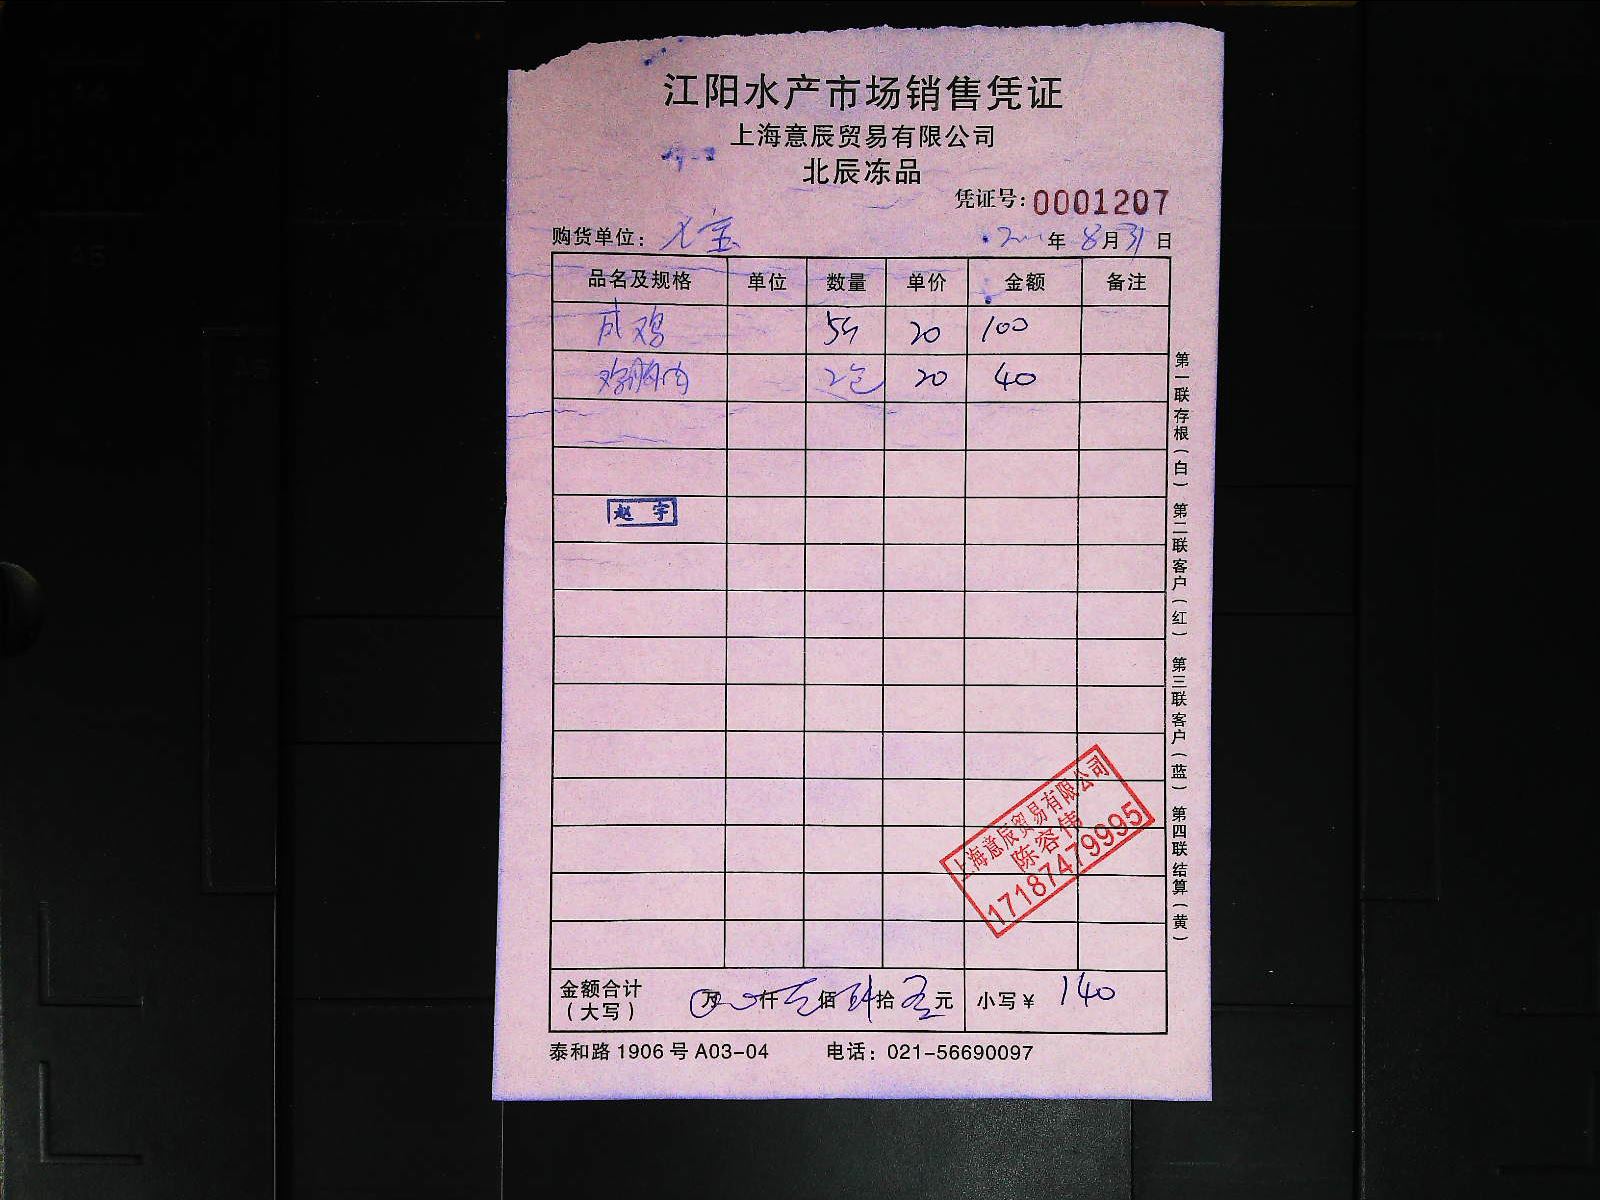 江阳水产市场销售凭证
上海意辰贸易有限公司
北辰冻品
凭证号：0001207
购货单位： 年 8 月 31 日
品名及规格 单位 数量 单价 金额 备注
鸡 5 20 100
鸡胸肉 2包 20 40
赵 宇
上海意辰贸易有限公司
陈容伟
17187479995
金额合计 万 仟 壹 佰 肆 拾 元 小写￥ 140
（大写）
泰和路1906号A03-04 电话：021-56690097
第一联存根（白） 第二联客户（红） 第三联客户（蓝） 第四联结算（黄）